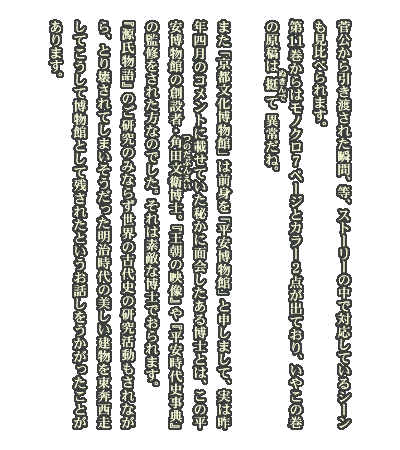 菅公から引き渡された瞬間、等、ストーリーの中で対応しているシーン
も見比べられます。
第11巻からはモノクロ7ページとカラー2点が出ており、いやこの巻
の原稿は挺って異常だね。
ぬきんで
また『京都文化博物館』は前身を『平安博物館』と申しまして、実は昨
年四月のコメントに載せていた秘かに面会したある博士とは、この平
安博物館の創設者・角田文衛博士。『王朝の映像』や『平安時代史事典』
つのだぶんえい
の監修をされた方なのでした。それは素敵な博士でおられます。
『源氏物語』のご研究のみならず世界の古代史の研究活動もされなが
ら、とり壊されてしまいそうだった明治時代の美しい建物を東奔西走
してこうして博物館として残されたというお話しをうかがったことが
あります。